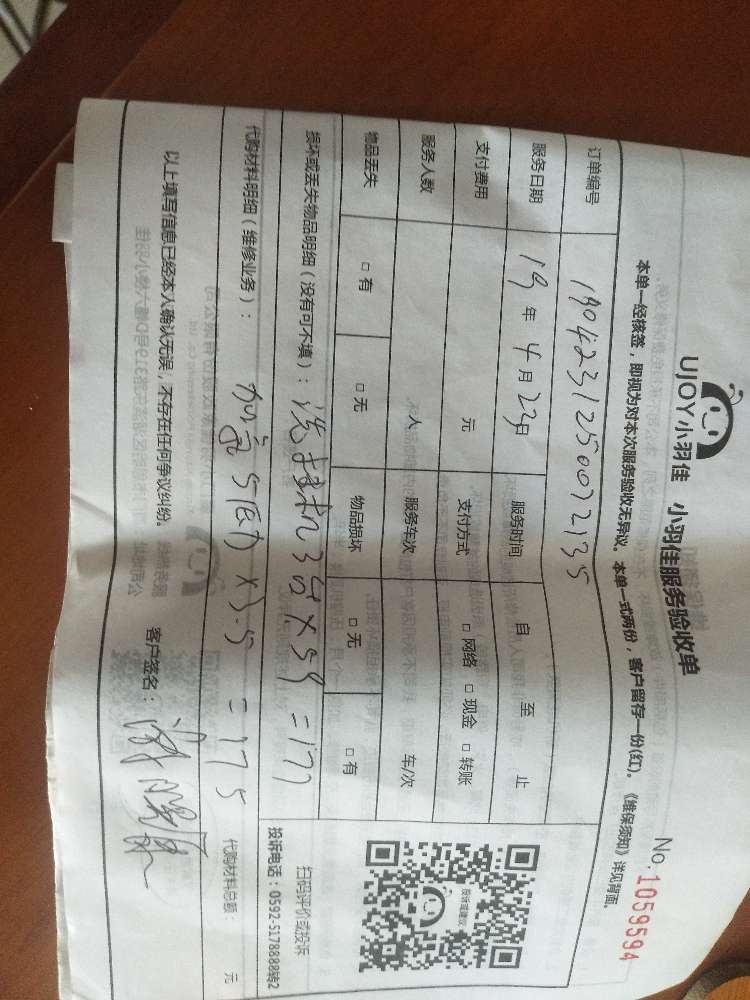 UJOY小羽佳 小羽佳服务验收单
No. 1059594
本单一经核签，即视为对本次服务验收无异议。本单一式两份，客户留存一份(红)。《维保须知》详见背面。
订单编号 1904231250072135
服务日期 19年4月23日 服务时间 自 至 止
支付费用 元 支付方式 □ 网络 □ 现金 □ 转账
服务人数 人 服务车次 车/次
物品丢失 □ 有 □ 无 物品损坏 □ 无 □ 有
损坏或丢失物品明细（没有可不填）： 3台×59=177
代购材料明细（维修业务）： 加 ×3.5 =175
代购材料总额： 元
以上填写信息已经本人确认无误，不存在任何争议纠纷。
客户签名：
投诉或建议
扫码评价或投诉
投诉电话：0592-5178888转2